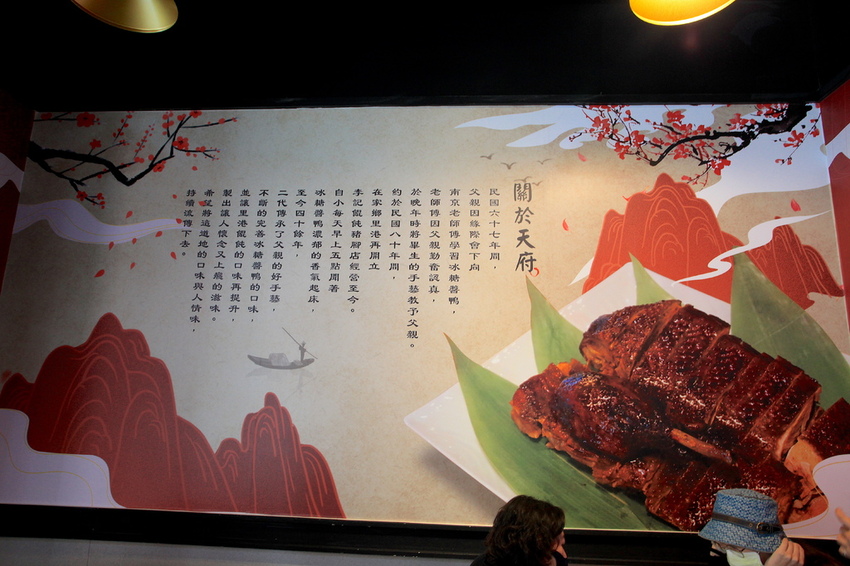 關於天府
民國六十七年間，
父親因緣際會下向
南京老師傅學習冰糖醬鴨，
老師傅因父親勤奮認真，
於晚年時將畢生的手藝教予父親。
約於民國八十年間，
在家鄉里港再開立
李記餛飩豬腳店經營至今。
自小每天早上五點聞著
冰糖醬鴨濃郁的香氣起床，
至今四十餘年，
二代傳承了父親的好手藝，
不斷的完善冰糖醬鴨的口味，
並讓里港餛飩的口味再提升，
製出讓人懷念又上癮的滋味。
希望將這道地的口味與人情味，
持續流傳下去。